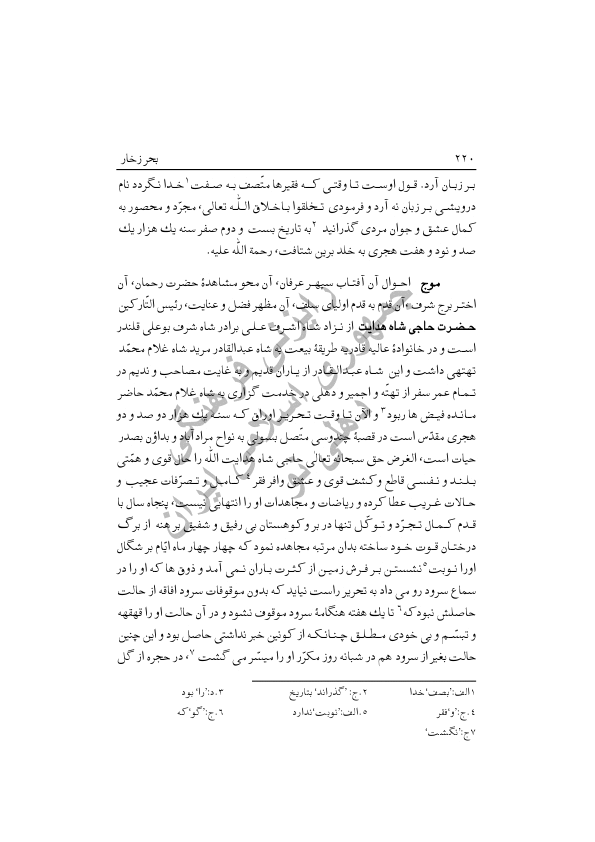 ۲۲۰ بحر زخار
بر زبان آرد. قول اوست تا وقتی که فقیرها متّصف به صفت۱ خدا نگردد نام
درویشی بر زبان نه آرد و فرمودی تخلقوا باخلاق اللّه تعالی، مجرّد و محصور به
کمال عشق و جوان مردی گذرانید ۲به تاریخ بست و دوم صفر سنه یك هزار یك
صد و نود و هفت هجری به خلد برین شتافت، رحمة اللّه علیه.
موج احوال آن آفتاب سپهر عرفان، آن محو مشاهدهٔ حضرت رحمان، آن
اختر برج شرف ،آن قدم به قدم اولیای سلف، آن مظهر فضل و عنایت، رئیس التّارکین
حضرت حاجی شاه هدایت از نزاد شاه اشرف علی برادر شاه شرف بوعلی قلندر
است و در خانوادهٔ عالیه قادریه طریقهٔ بیعت به شاه عبدالقادر مرید شاه غلام محمّد
تهتهی داشت و این شاه عبدالقادر از یاران قدیم و به غایت مصاحب و ندیم در
تمام عمر سفر از تهتّه و اجمیر و دهلی در خدمت گزاری به شاه غلام محمّد حاضر
مانده فیض ها ربود۳ و الآن تا وقت تحریر اوراق که سنه یك هزار دو صد و دو
هجری مقدّس است در قصبهٔ چندوسی متّصل بسولی به نواح مرادآباد و بداؤن بصدر
حیات است، الغرض حق سبحانه تعالی حاجی شاه هدایت اللّه را حال قوی و همّتی
بلند و نفسی قاطع و کشف قوی و عشق وافر فقر ٤ کامل و تصرّفات عجیب و
حالات غریب عطا کرده و ریاضات و مجاهدات او را انتهایی نیست، پنجاه سال با
قدم کمال تجرّد و توکّل تنها در بر و کوهستان بی رفیق و شفیق بر هنه از برگ
درختان قوت خود ساخته بدان مرتبه مجاهده نمود که چهار چهار ماه ایّام بر شگال
اورا نوبت٥ نشستن بر فرش زمین از کثرت باران نمی آمد و ذوق ها که او را در
سماع سرود رو می داد به تحریر راست نیاید که بدون موقوفات سرود افاقه از حالت
حاصلش نبود که٦ تا یك هفته هنگامهٔ سرود موقوف نشود و در آن حالت او را قهقهه
و تبسّم و بی خودی مطلق چنانکه از کونین خبر نداشتی حاصل بود و این چنین
حالت بغیر از سرود هم در شبانه روز مکرّر او را میسّر می گشت ۷، در حجره از گل
۱الف:’بصف‘خدا ۲.ج: ’گذراند‘ بتاریخ ۳.د:’را‘ بود
٤.ج:’و‘فقر ٥.الف:’نوبت‘ندارد ٦.ج:’گو‘که
۷ج:’نگشت‘
رایزنی فرهنگی
جمهوری اسلامی ایران
دهلی نو